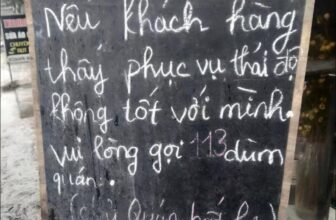 Nếu khách hàng
thấy phục vụ thái độ
không tốt với mình.
vui lòng gọi 113 dùm
quán..